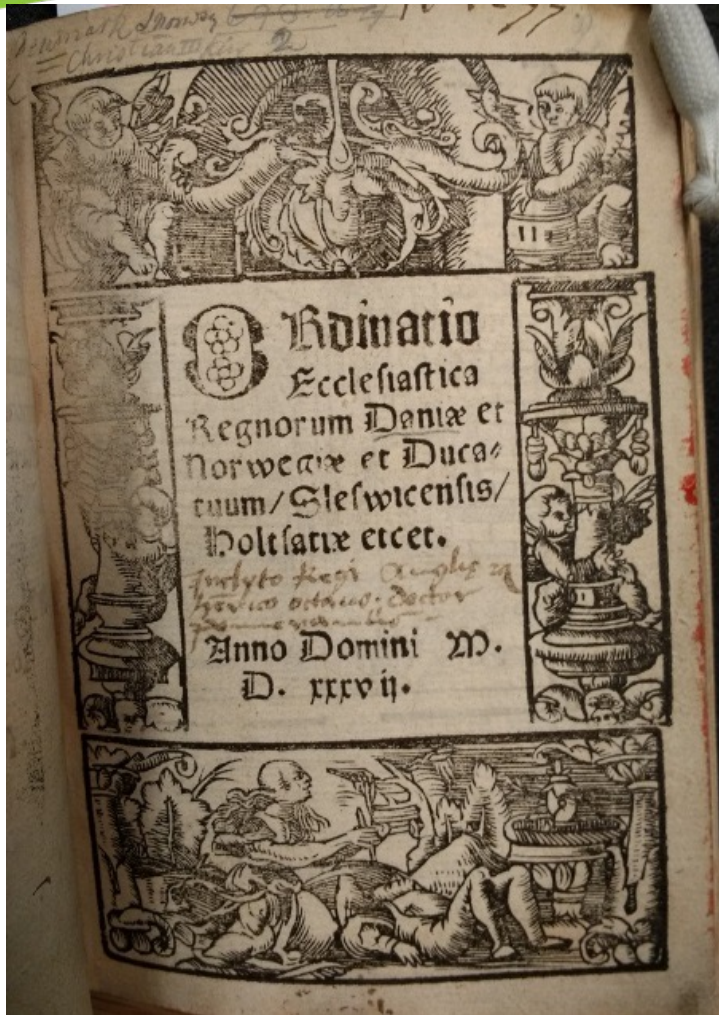 Denmark & Norway
Christian III King 2
ORdinatio
Ecclesiastica
Regnorum Daniæ et
Norwegiæ et Duca⸗
tuum/Sleswicensis/
Holtsatiæ etcet.
Inclyto Regi Anglię
henrico octauo doctor
Anno Domini M.
D. xxxvij.